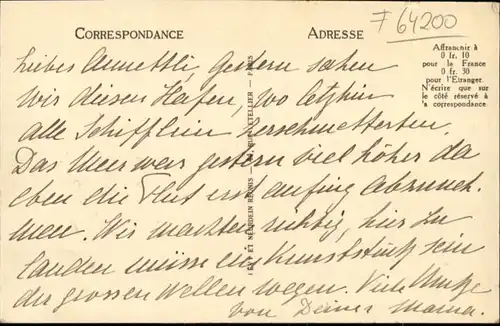 CORRESPONDANCE
ADRESSE
F 64200
Affranchir à
0 fr. 10
pour la France
0 fr. 30
pour l'Etranger.
N'écrire que sur
le côté réservé à
la correspondance
LEVY ET NEURDEIN REUNIS — PARIS
Liebes Annettli, Gestern sahen
wir diesen Hafen, wo letzhin
alle Schifflein zerschmetterten.
Das Meer war gestern viel höher da
eben die Flut erst anfing abzuneh-
men. Wir machten richtig, hier zu
landen müsse ein Kunststück sein
der grossen Wellen wegen. Viele
von Deiner Mama.